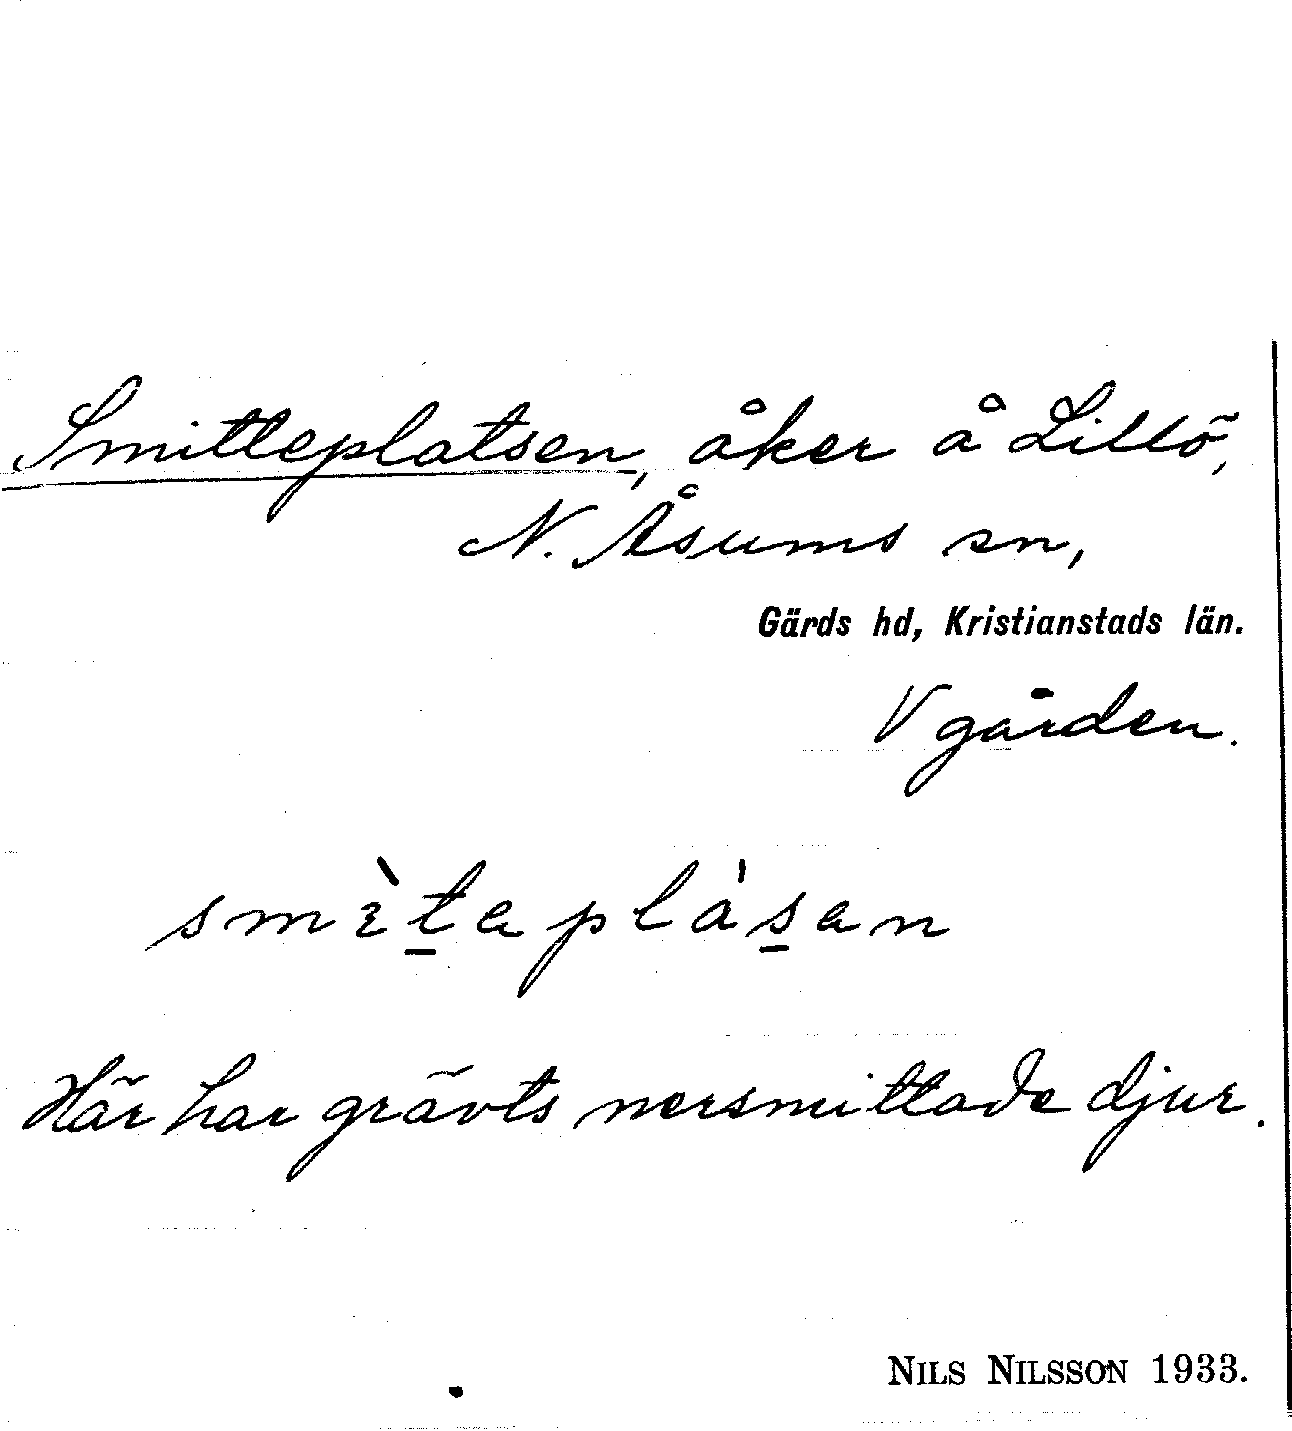 Smitteplatsen, åker å Lillö,
N. Åsums sn,
Gärds hd, Kristianstads län.
V gården.
smìt̲eplás̲en
Här har grävts nersmittade djur.
NILS NILSSON 1933.